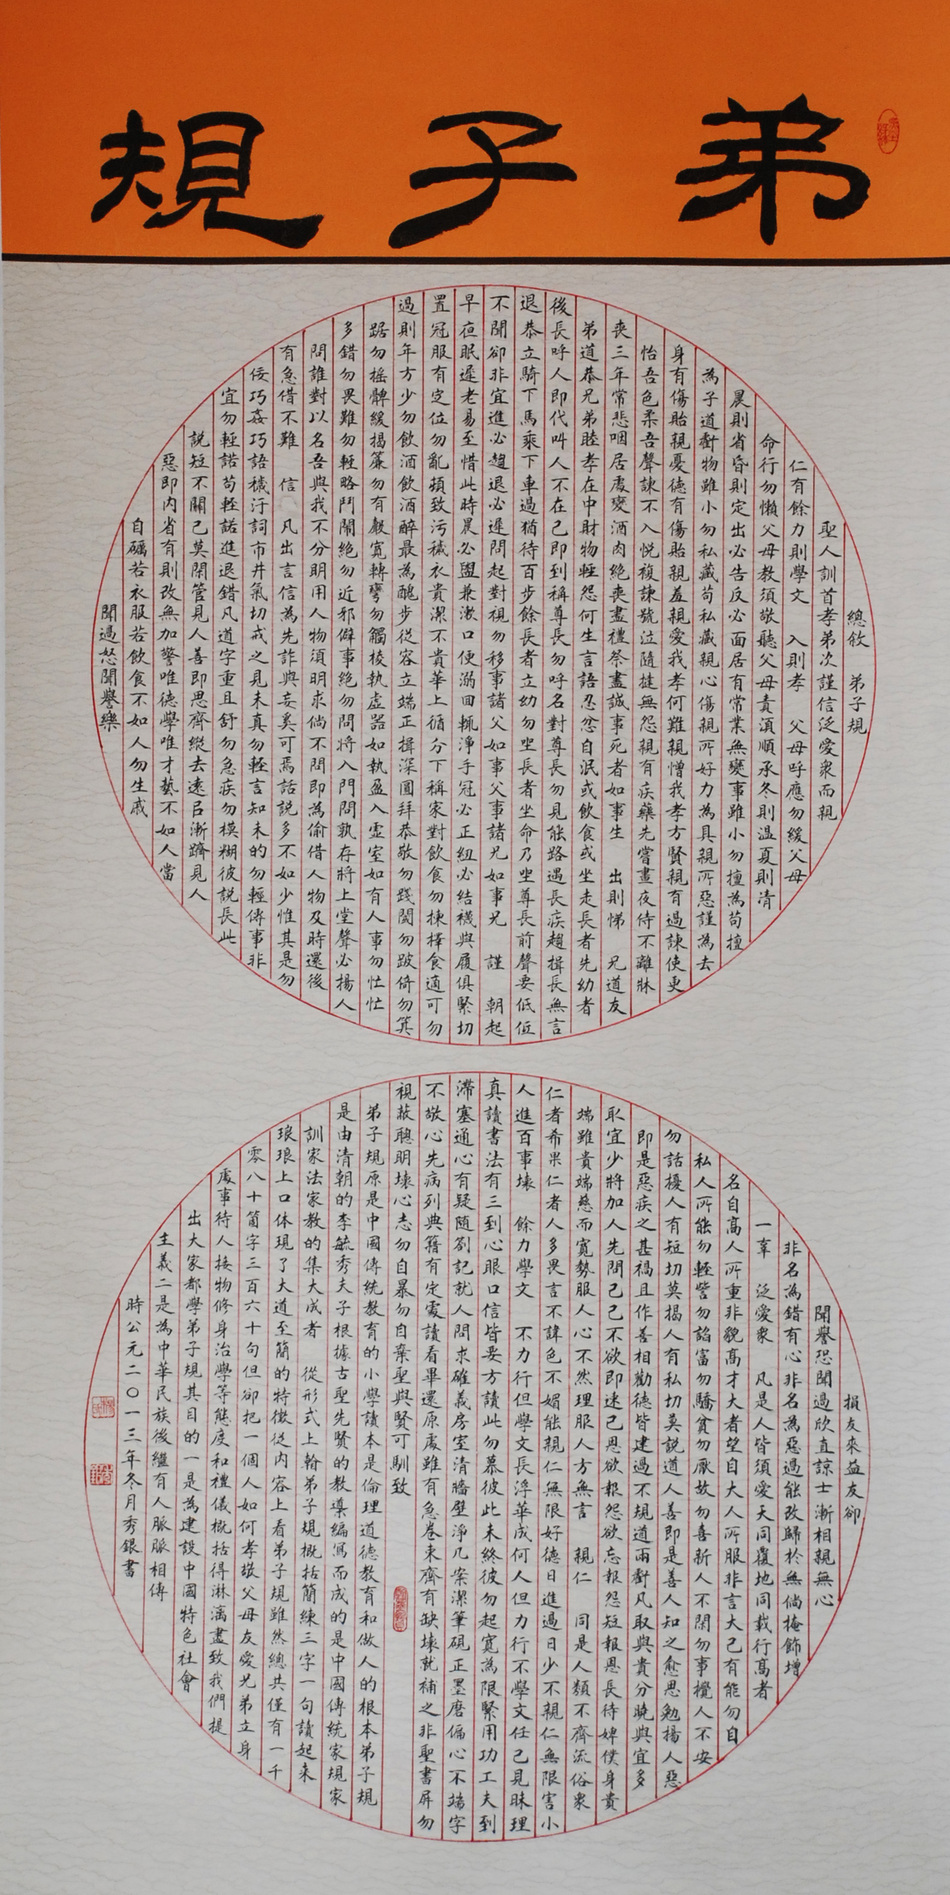 弟子規
總敘　弟子規
聖人訓首孝弟次謹信泛愛衆而親
仁有餘力則學文　入則孝　父母呼應勿緩父母
命行勿懶父母教須敬聽父母責須順承冬則溫夏則清
晨則省昏則定出必告反必面居有常業無變事雖小勿擅為苟擅
為子道虧物雖小勿私藏苟私藏親心傷親所好力為具親所惡謹為去
身有傷貽親憂德有傷貽親羞親愛我孝何難親憎我孝方賢親有過諫使更
怡吾色柔吾聲諫不入悅複諫號泣隨撻無怨親有疾藥先嘗晝夜侍不離牀
喪三年常悲咽居處變酒肉絕喪盡禮祭盡誠事死者如事生　出則悌　兄道友
弟道恭兄弟睦孝在中財物輕怨何生言語忍忿自泯或飲食或坐走長者先幼者
後長呼人即代叫人不在己即到稱尊長勿呼名對尊長勿見能路遇長疾趨揖長無言
退恭立騎下馬乘下車過猶待百步餘長者立幼勿坐長者坐命乃坐尊長前聲要低低
不聞卻非宜進必趨退必遲問起對視勿移事諸父如事父事諸兄如事兄　謹　朝起
早夜眠遲老易至惜此時晨必盥兼漱口便溺回輒淨手冠必正紐必結襪與履俱緊切
置冠服有定位勿亂頓致污穢衣貴潔不貴華上循分下稱家對飲食勿揀擇食適可勿
過則年方少勿飲酒飲酒醉最為醜步從容立端正揖深圓拜恭敬勿踐閾勿跛倚勿箕
踞勿搖髀緩揭簾勿有聲寬轉彎勿觸棱執虛器如執盈入虛室如有人事勿忙忙
多錯勿畏難勿輕略鬥鬧絕勿近邪僻事絕勿問將入門問孰存將上堂聲必揚人
問誰對以名吾與我不分明用人物須明求倘不問即為偷借人物及時還後
有急借不難　信　凡出言信為先詐與妄奚可焉話說多不如少惟其是勿
佞巧姦巧語穢汙詞市井氣切戒之見未真勿輕言知未的勿輕傳事非
宜勿輕諾苟輕諾進退錯凡道字重且舒勿急疾勿模糊彼說長此
說短不關己莫閑管見人善即思齊縱去遠㠯漸躋見人
惡即內省有則改無加警唯德學唯才藝不如人當
自礪若衣服若飲食不如人勿生戚
聞過怒聞譽樂
損友來益友卻
聞譽恐聞過欣直諒士漸相親無心
非名為錯有心非名為惡過能改歸於無倘掩飾增
一辜　泛愛衆　凡是人皆須愛天同覆地同載行高者
名自高人所重非貌高才大者望自大人所服非言大己有能勿自
私人所能勿輕訾勿諂富勿驕貧勿厭故勿喜新人不閑勿事攪人不安
勿話擾人有短切莫揭人有私切莫說道人善即是善人知之愈思勉揚人惡
即是惡疾之甚禍且作善相勸德皆建過不規道兩虧凡取與貴分曉與宜多
取宜少將加人先問己己不欲即速已恩欲報怨欲忘報怨短報恩長待婢僕身貴
端雖貴端慈而寬勢服人心不然理服人方無言　親仁　同是人類不齊流俗衆
仁者希果仁者人多畏言不諱色不媚能親仁無限好德日進過日少不親仁無限害小
人進百事壞　餘力學文　不力行但學文長浮華成何人但力行不學文任己見昧理
真讀書法有三到心眼口信皆要方讀此勿慕彼此未終彼勿起寬為限緊用功工夫到
滯塞通心有疑隨劄記就人問求確義房室清牆壁淨几案潔筆硯正墨磨偏心不端字
不敬心先病列典籍有定處讀看畢還原處雖有急卷束齊有缺壞就補之非聖書屏勿
視蔽聰明壞心志勿自暴勿自棄聖與賢可馴致
弟子規原是中國傳統教育的小學讀本是倫理道德教育和做人的根本弟子規
是由清朝的李毓秀夫子根據古聖先賢的教導編寫而成的是中國傳統家規家
訓家法家教的集大成者　從形式上幹弟子規概括簡練三字一句讀起來
琅琅上口体現了大道至簡的特徵從内容上看弟子規雖然總共僅有一千
零八十箇字三百六十句但卻把一個人如何孝敬父母友愛兄弟立身
處事待人接物修身治學等態度和禮儀概括得淋漓盡致我們提
出大家都學弟子規其目的一是為建設中國特色社會
主義二是為中華民族後繼有人脈脈相傳
時公元二〇一三年冬月秀銀書